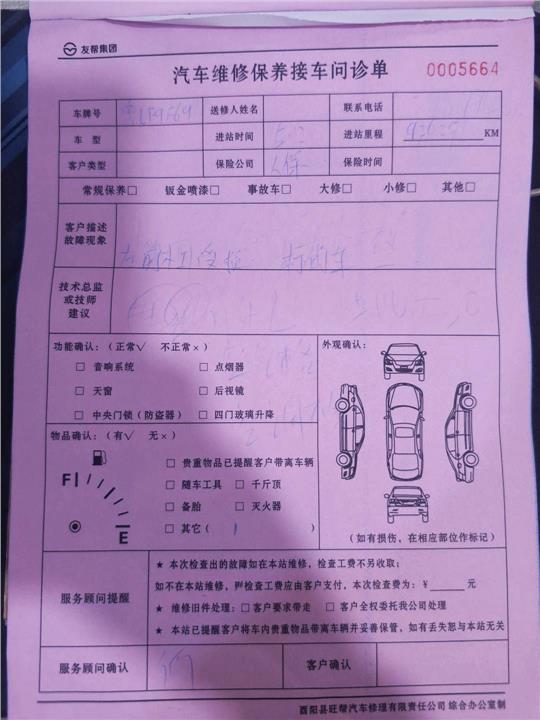 友帮集团
汽车维修保养接车问诊单 0005664
车牌号 送修人姓名 联系电话
车 型 进站时间 进站里程 KM
客户类型 保险公司 人保 保险时间
常规保养□ 钣金喷漆□ 事故车□ 大修□ 小修□ 其他□
客户描述
故障现象
技术总监
或技师
建议
功能确认:（正常√ 不正常×） 外观确认:
□ 音响系统 □ 点烟器
□ 天窗 □ 后视镜
□ 中央门锁（防盗器） □ 四门玻璃升降
物品确认:（有√ 无×）
□ 贵重物品已提醒客户带离车辆
□ 随车工具 □ 千斤顶
□ 备胎 □ 灭火器
□ 其它（ ）
F
E
（如有损伤，在相应部位作标记）
服务顾问提醒
★ 本次检查出的故障如在本站维修，检查工费不另收取；
如不在本站维修，则检查工费应由客户支付，本次检查费为：¥ 元
★ 维修旧件处理：□ 客户要求带走 □ 客户全权委托我公司处理
★ 本站已提醒客户将车内贵重物品带离车辆并妥善保管，如有丢失恕与本站无关
服务顾问确认 客户确认
酉阳县旺帮汽车修理有限责任公司 综合办公室制